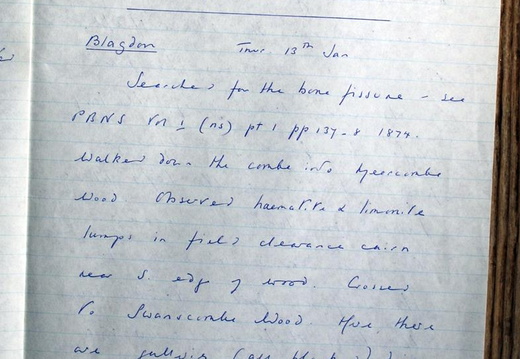 Blagdon Thur 13th Jan
Searched for the bone fissure - see
PBNS Vol 1 (ns) pt 1 pp 137-8 1874.
Walked down the combe into
Wood Observed haematite & limonite
lumps in field clearance cairn
near S. edge of wood. Crossed
to Swanscombe Wood. Here there
are gullies